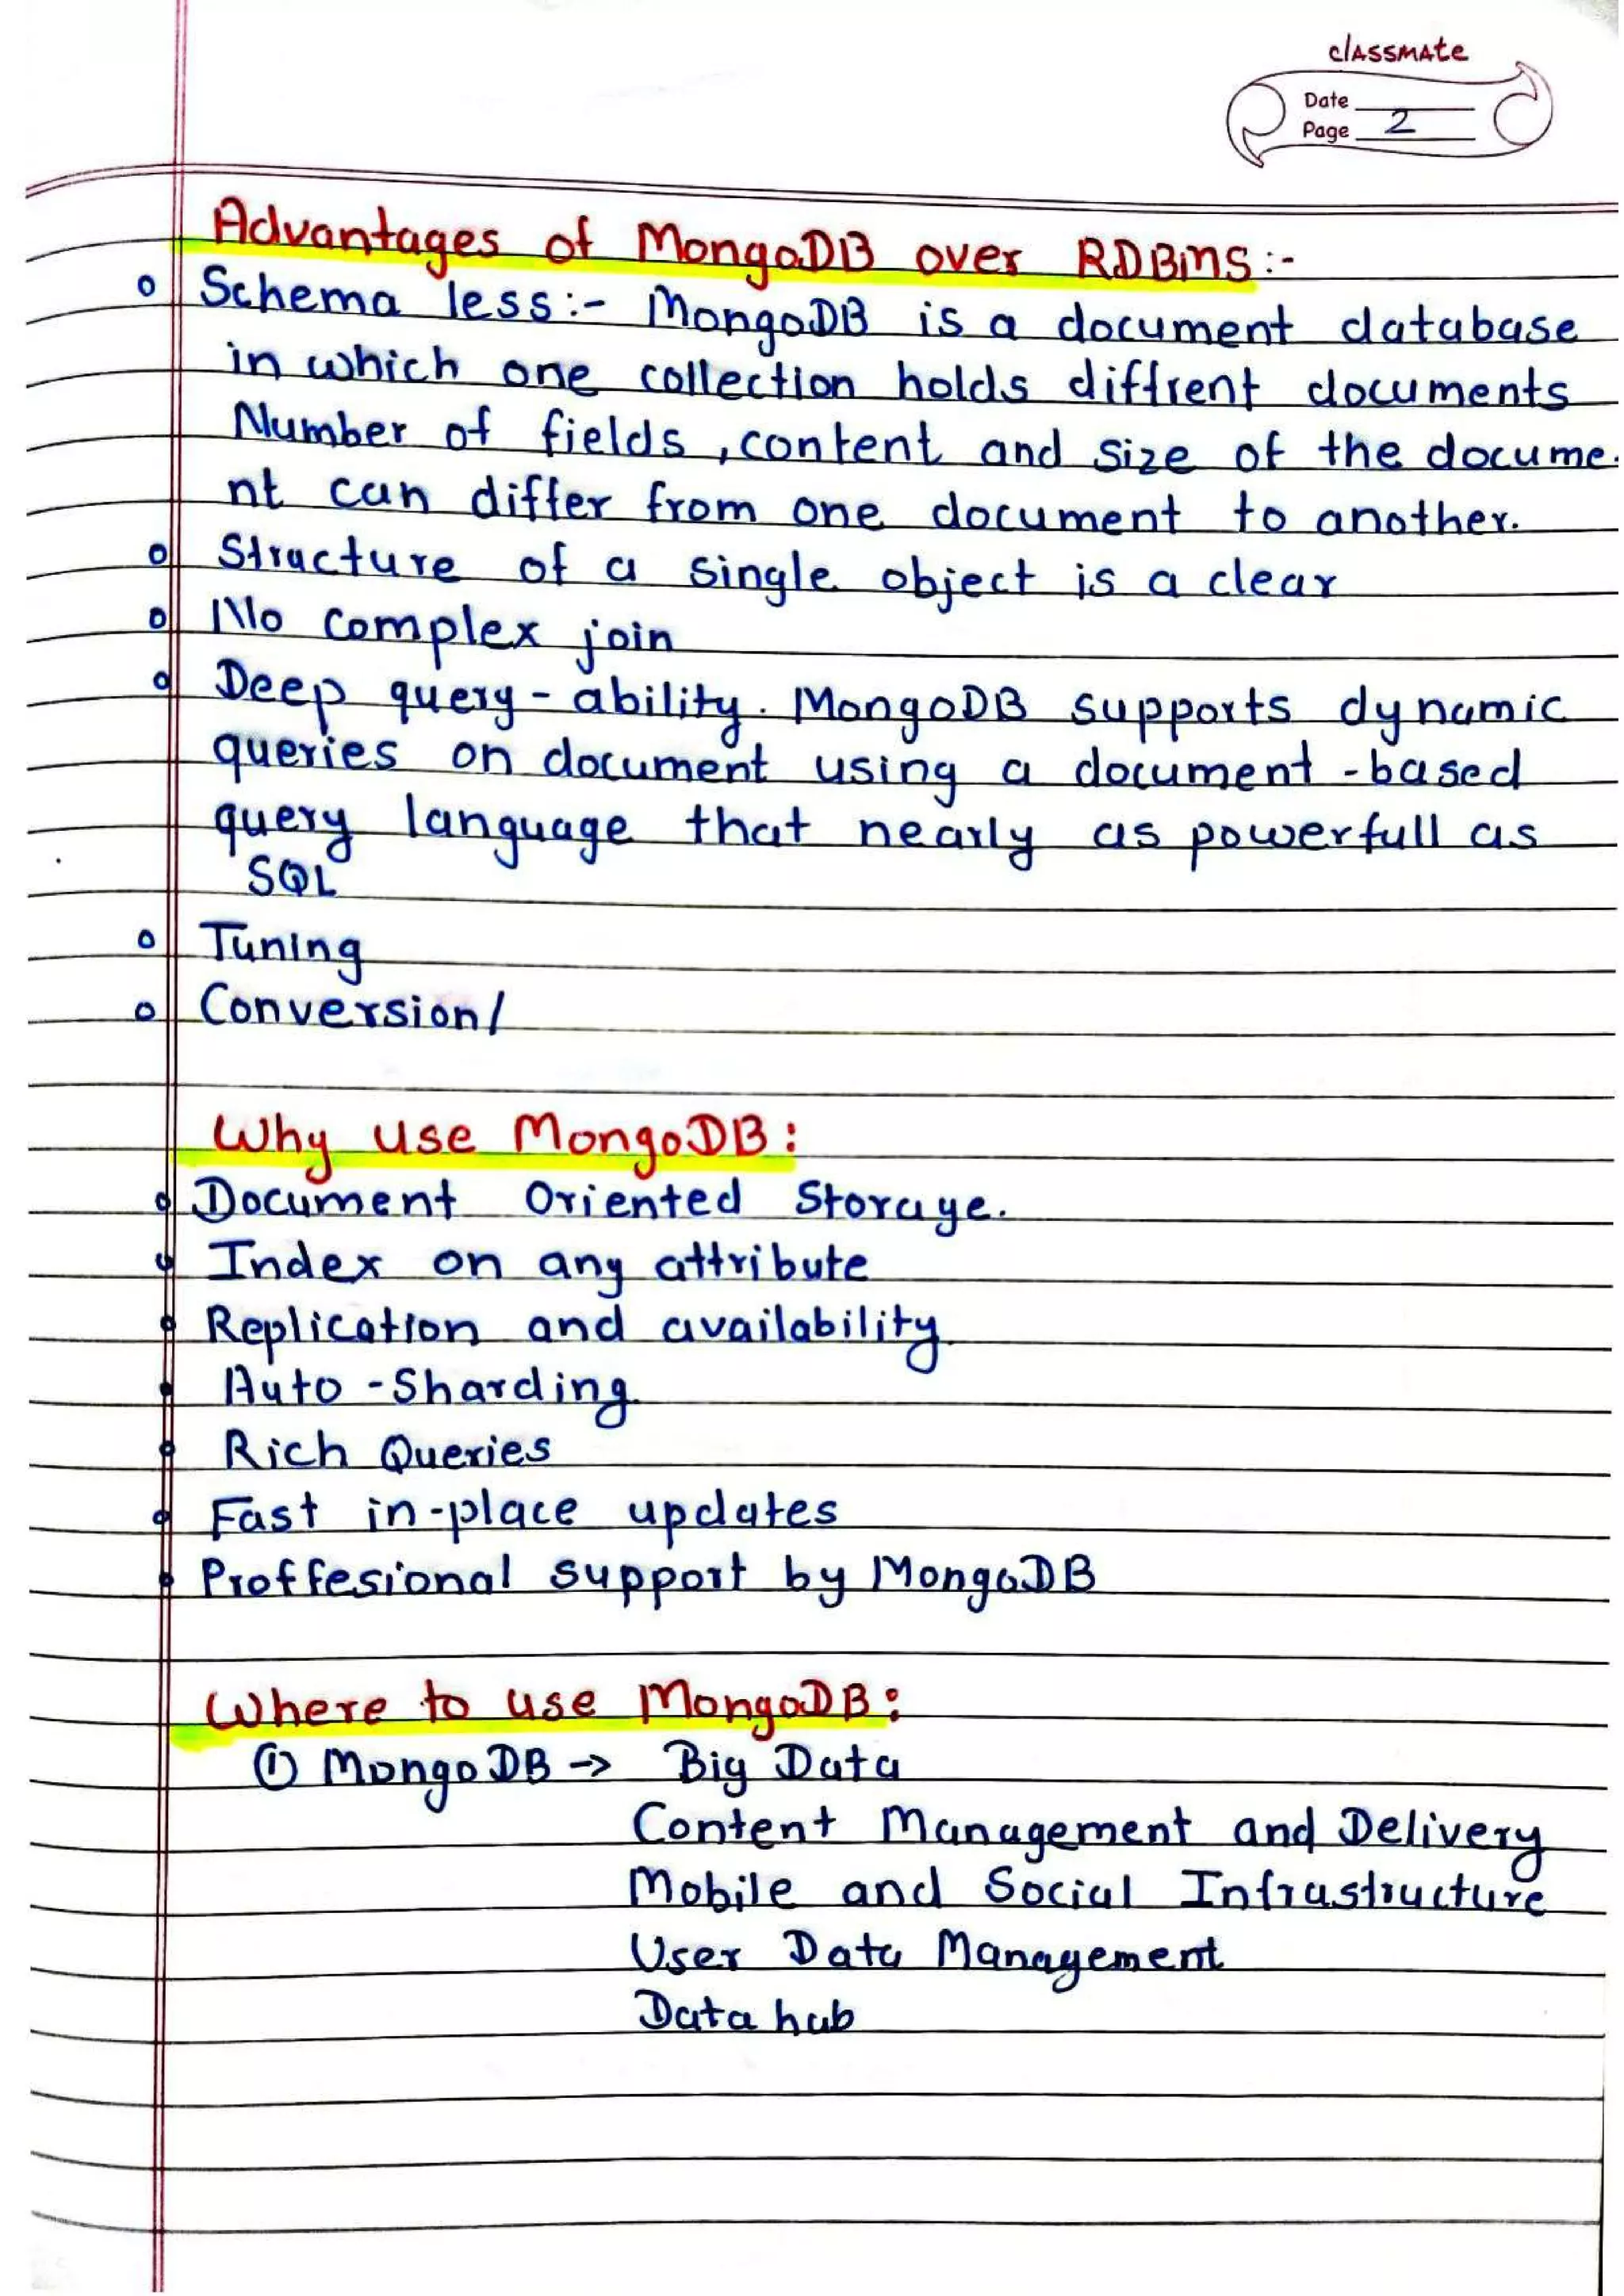 classmate
Date
Page 2
Advantages of MongoDB over RDBMS:-
o Schema less:- MongoDB is a document database
in which one collection holds diffrent documents
Number of fields, content and size of the docume-
nt can differ from one document to another.
o Structure of a single object is a clear
o No complex join
o Deep query-ability. MongoDB supports dynamic
queries on document using a document-based
query language that nearly as powerfull as
SQL
o Tuning
o Conversion/
Why use MongoDB:
o Document Oriented Storage.
o Index on any attribute
o Replication and availability
• Auto-Sharding
o Rich Queries
o Fast in-place updates
• Proffesional support by MongoDB
Where to use MongoDB:
① MongoDB → Big Data
Content Management and Delivery
Mobile and Social Infrastructure
User Data Management
Data hub